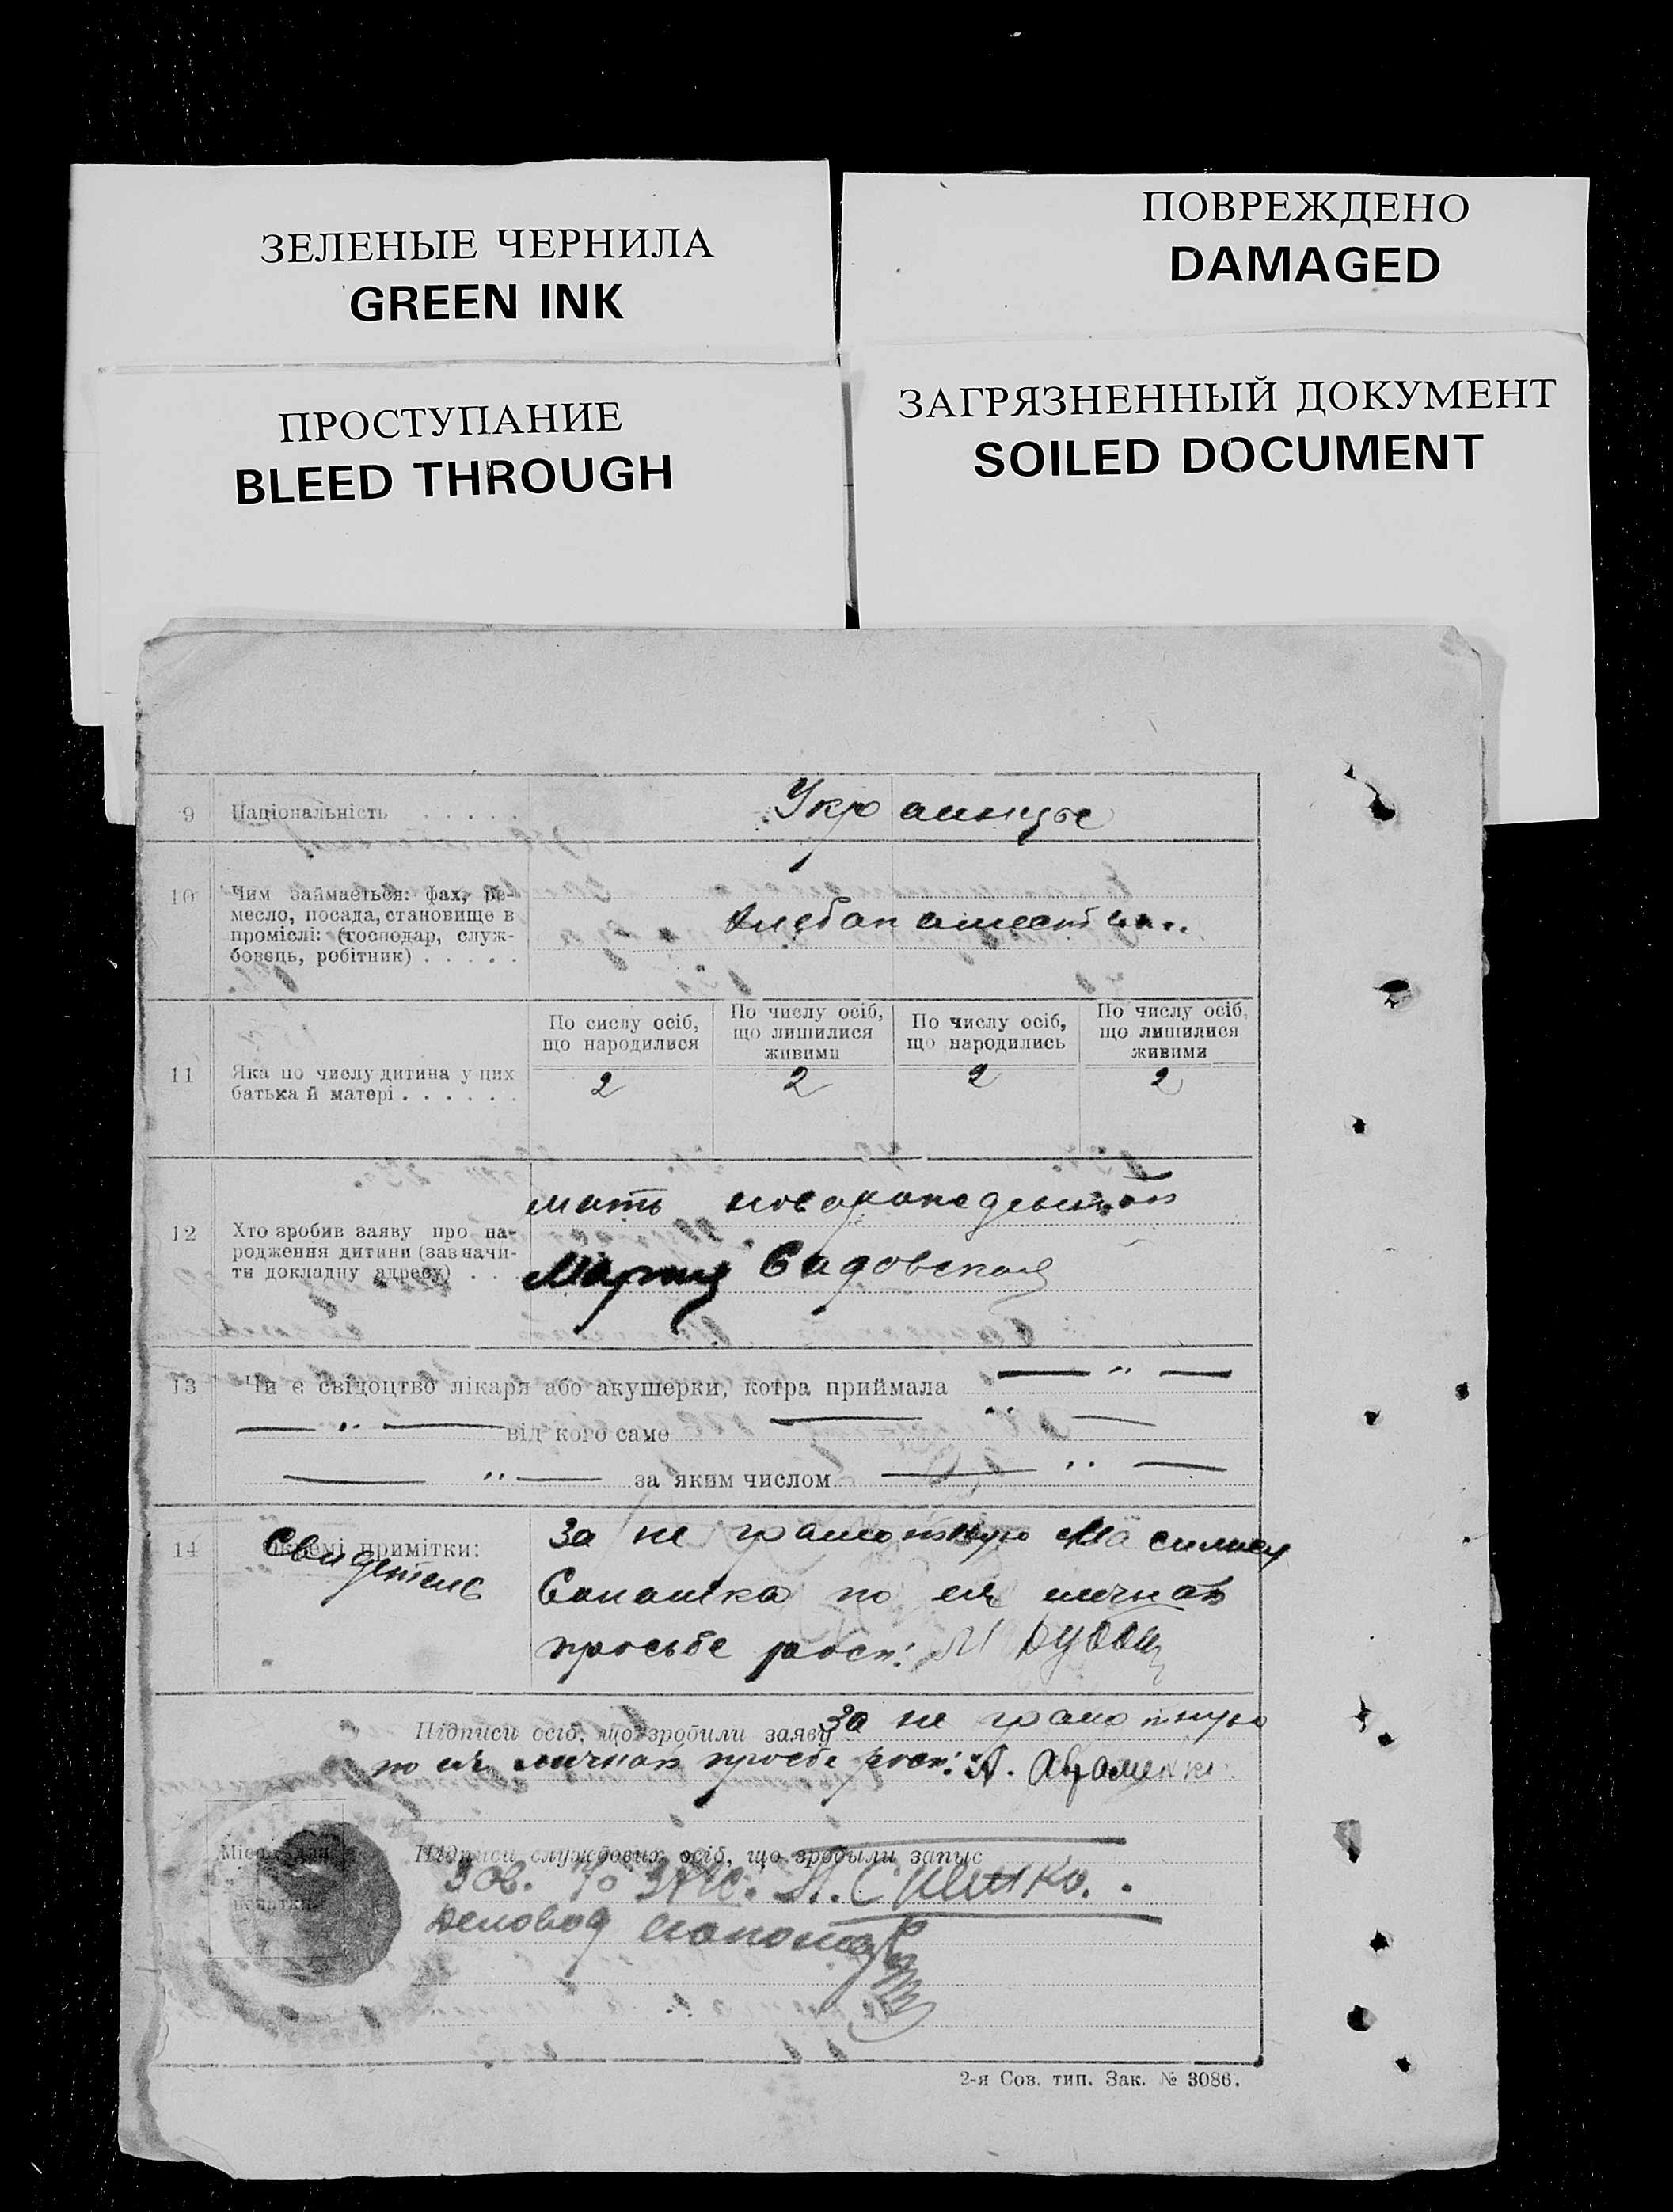 ЗЕЛЕНЫЕ ЧЕРНИЛА
GREEN INK
ПРОСТУПАНИЕ
BLEED THROUGH
ПОВРЕЖДЕНО
DAMAGED
ЗАГРЯЗНЕННЫЙ ДОКУМЕНТ
SOILED DOCUMENT
9 Національність . . . . . Украинцы
10 Чим займається: фах, ре-
месло, посада, становище в
проміслі: (господар, служ-
бовець, робітник) . . . . .
Хлебопашество
11 Яка по числу дитина у цих
батька й матері . . . . . .
По сислу осіб,
що народилися
2
По числу осіб,
що лишилися
живими
2
По числу осіб,
що народились
2
По числу осіб,
що лишилися
живими
2
12 Хто зробив заяву про на-
родження дитини (зазначи-
ти докладну адресу) . . .
мать новорожденной
Мария Садовская
13 Чи є свідоцтво лікаря або акушерки, котра приймала — " —
— " — від кого саме — " —
— " — за яким числом — " —
14 Окремі примітки:
Свидетель
За не грамотную
по ея личной
просьбе росп:
Підписи осіб, що зробили заяву За не грамотную
по ея личной просбе росп: А. Авраменко
Місце для
печатки
Підписи службових осіб, що зробыли запыс
Зав.
Деловод
2-я Сов. тип. Зак. № 3086.